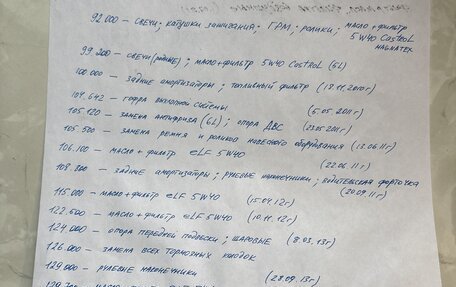 92 000 – свечи; катушки зажигания; ГРМ; ролики; масло+фильтр
5W40 Castrol
MAGNATEX
99 200 – свечи (родные); масло+фильтр 5W40 Castrol (5L)
100.000 – задние амортизаторы; топливный фильтр (19.11.2010г)
104.642 – гофра выхлопной системы (6.05.2011г)
105.120 – замена антифриза (6L); опора ДВС (23.05.2011г)
105.500 – замена ремня и роликов навесного оборудования (13.06.11г)
106.100 – масло + фильтр eLF 5W40 (22.06.11г)
108.300 – задние амортизаторы; рулевые наконечники; водительская форточка
(20.09.11г)
115 000 – масло+фильтр eLF 5W40 (15.04.12г)
122.600 – масло+фильтр eLF 5W40 (10.11.12г)
124.000 – опора передней подвески; шаровые (8.03.13г)
126.000 – замена всех тормозных колодок
129.000 – рулевые наконечники (28.09.13г)